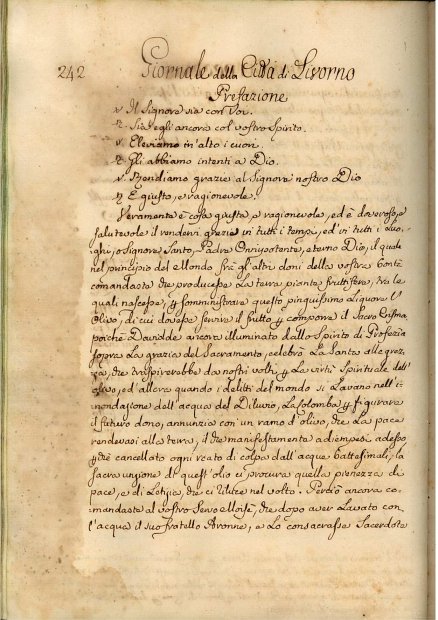 242 Giornale della Città di Livorno
Prefazione
V. Il Signore sia con Voi.
R. Sia egli ancora col vostro Spirito.
V. Eleviamo in'alto i cuori.
R. Gli abbiamo intenti a Dio.
V. Rendiamo grazie al Signore nostro Dio
R. È giusto, e ragionevole.
Veramente è cosa giusta, e ragionevole, ed è doveroso, e
salutevole il rendervi grazie in tutti i tempi, ed in tutti i Luo,
ghi, o Signore Santo, Padre Onnipotente, eterno Dio, il quale
nel principio del Mondo frà gl'altri doni della vostra bontà
comandaste che producesse La terra piante fruttifere, trà le
quali nascesse, che somministrare questo pinguissimo Liquore L'
Olivo, di cui dovesse servire il frutto per comporre il Sacro Crisma,
poichè Davidde ancora illuminato dallo Spirito di Profezia
sopra La grazia del Sacramento, celebrò La Santa allegrez,
za, che traspirerebbe da nostri volti per La virtù Spirituale dell'
esso, ed allora quando i delitti del mondo si Lavano nell'i
nondazione dell'acqua del Diluvio, La Colomba per figurare
il futuro dono, annunziò con un ramo d'olivo, che La pace
rendevasi alla terra, il che manifestamente adempiesi adesso
perchè cancellato ogni reato di colpa dall'acque battesimali, la
sacra unzione di quest'olio ci procura quella pienezza di
pace, e di Letizia, che ci riluce nel volto. Perciò ancora co,
mandaste al vostro Servo Moisè, che dopo aver Lavato con
l'acqua il suo fratello Aronne, e Lo consacrasse Sacerdote